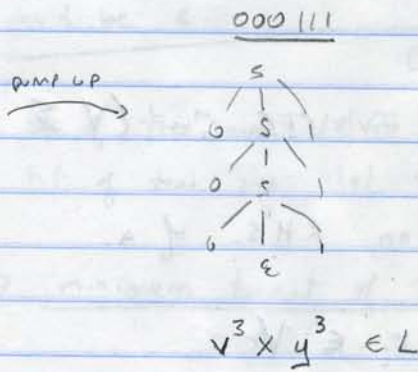 000 111
PUMP UP
S
0 S 1
0 S 1
0 ε 1
v³ x y³ ∈ L